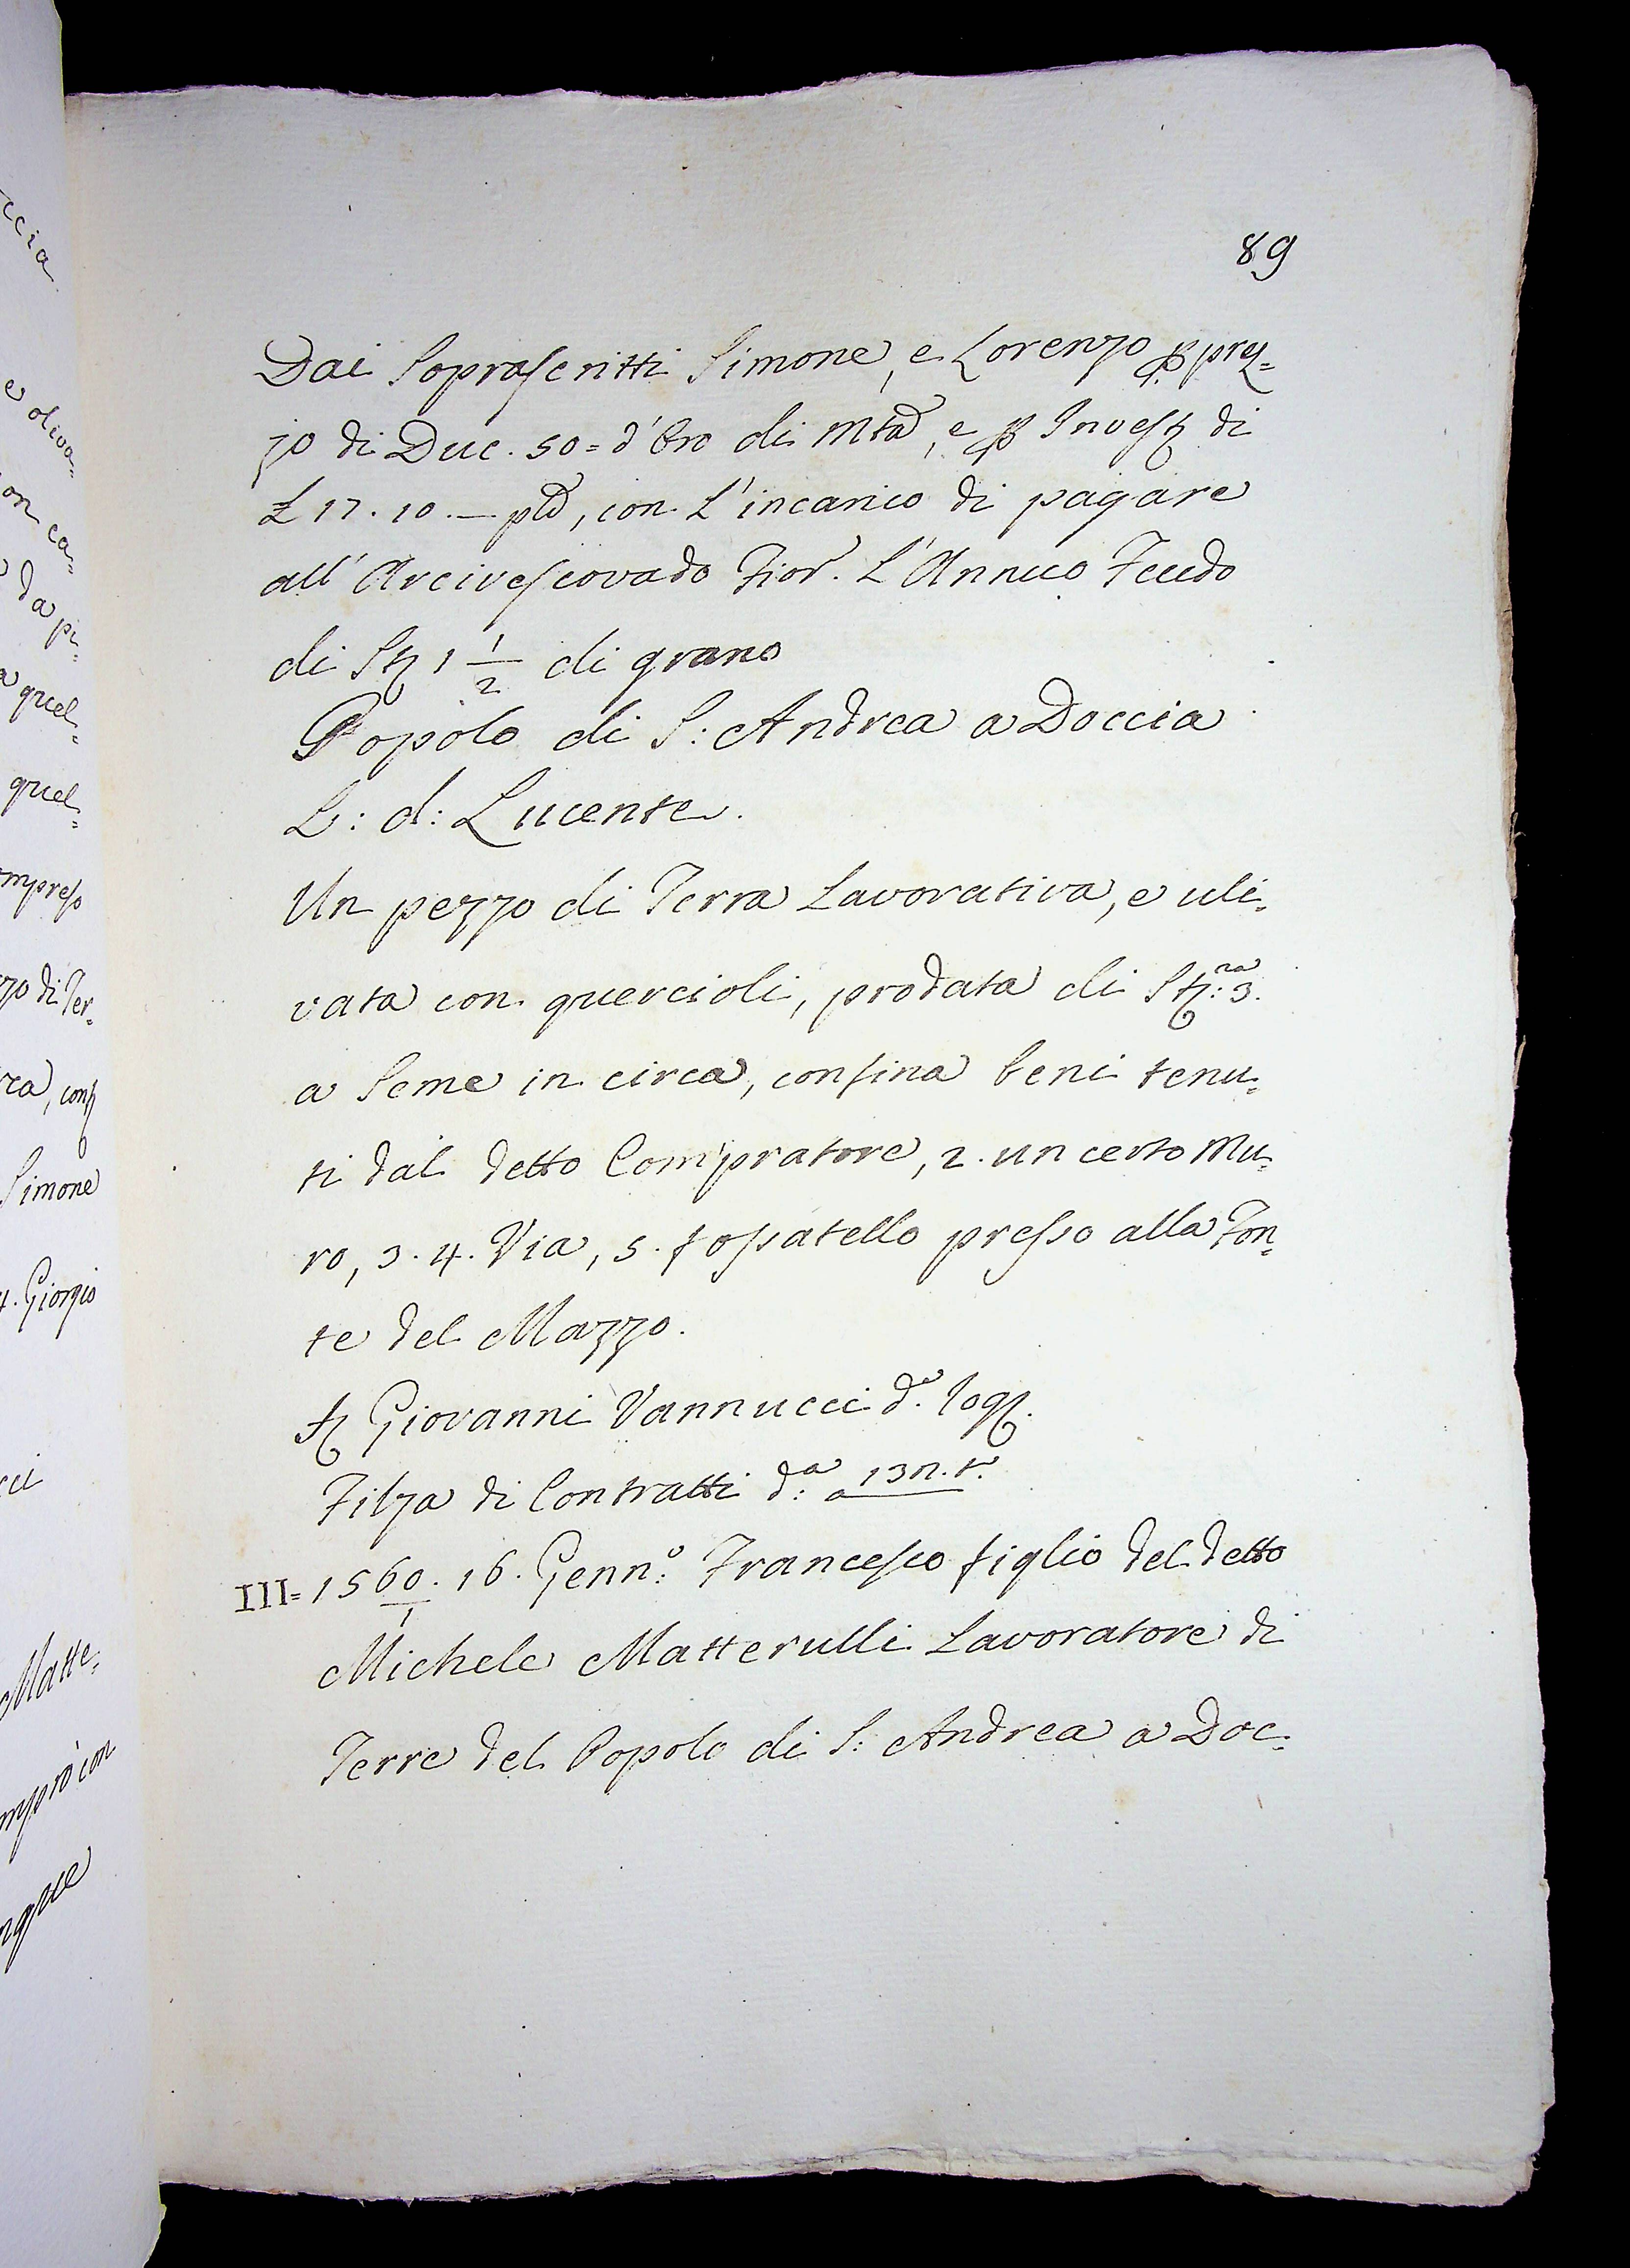 89
Dai Soprascritti Simone, e Lorenzo p prez=
zo di Duc. 50= d'Oro di Mta, e p Invest di
£ 17. 10. — pta, con L'incarico di pagare
all'Arcivescovado Fior. L'Annuo Feudo
di St 1 1/2 di grano
Popolo di S: Andrea a Doccia
L: d: Lucente.
Un pezzo di Terra Lavorativa, e uli=
vata con quercioli, prodata di St:ra 3.
a Seme in circa, confina beni tenu=
ti dal detto Compratore, 2. un certo Mu=
ro, 3. 4. Via, 5. fossatello presso alla Fon=
te del Mazzo.
Giovanni Vannucci do. Rog.
Filza di Contratti d:a a 137. t.
III= 1560/1. 16. Genn:o Francesco figlio del detto
Michele Matterulli Lavoratore di
Terre del Popolo di S: Andrea a Doc=
ccia
e oliva=
on ca=
da pi=
a quel=
quel=
mpreso
zo di Ter=
ra, conf
Simone
4. Giorgio
cci
Matte=
mprò con
nque